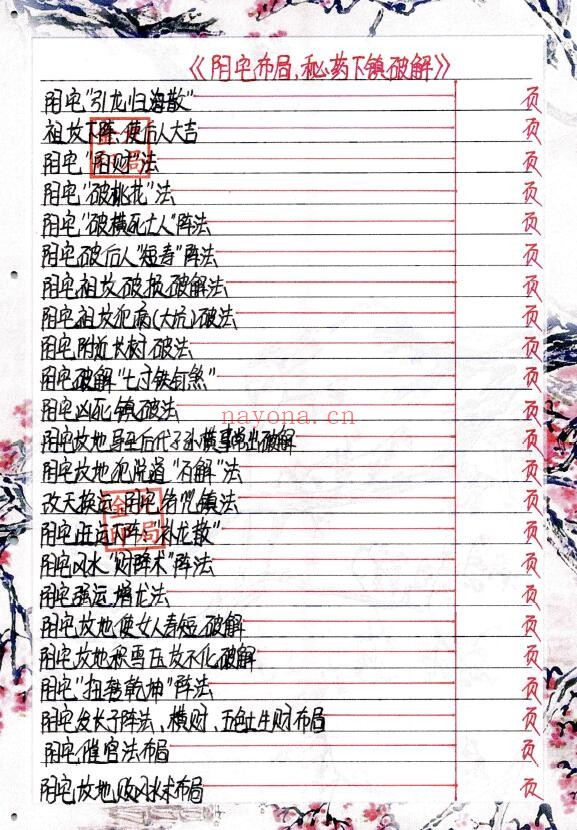 《阴宅布局,秘药下镇破解》
阴宅"引龙归海散" 页
祖坟下阵,使后人大吉 页
阴宅"阳财"法 页
阴宅"破桃花"法 页
阴宅"破横死亡人"阵法 页
阴宅破后人"短寿"阵法 页
阴宅祖坟破损破解法 页
阴宅祖坟犯病(大坑)破法 页
阴宅附近长树破法 页
阴宅破解"七寸铁钉煞" 页
阴宅凶死镇破法 页
nayona.cn
阴宅坟地 后代子孙横事常出破解 页
阴宅坟地犯 道"石解"法 页
改天换运,阴宅符咒镇法 页
阴宅旺运下阵:"补龙散" 页
阴宅风水"财降术"阵法 页
阴宅强运,增龙法 页
阴宅坟地使女人寿短破解 页
阴宅坟地积雪压坟不化破解 页
阴宅"扭转乾坤"阵法 页
阴宅发长子阵法、横财、五色土生财布局 页
阴宅催官法布局 页
阴宅坟地败风水术布局 页